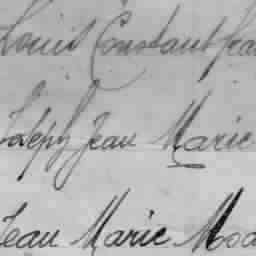 Louis Constant Jean
Joseph Jean Marie
Jean Marie